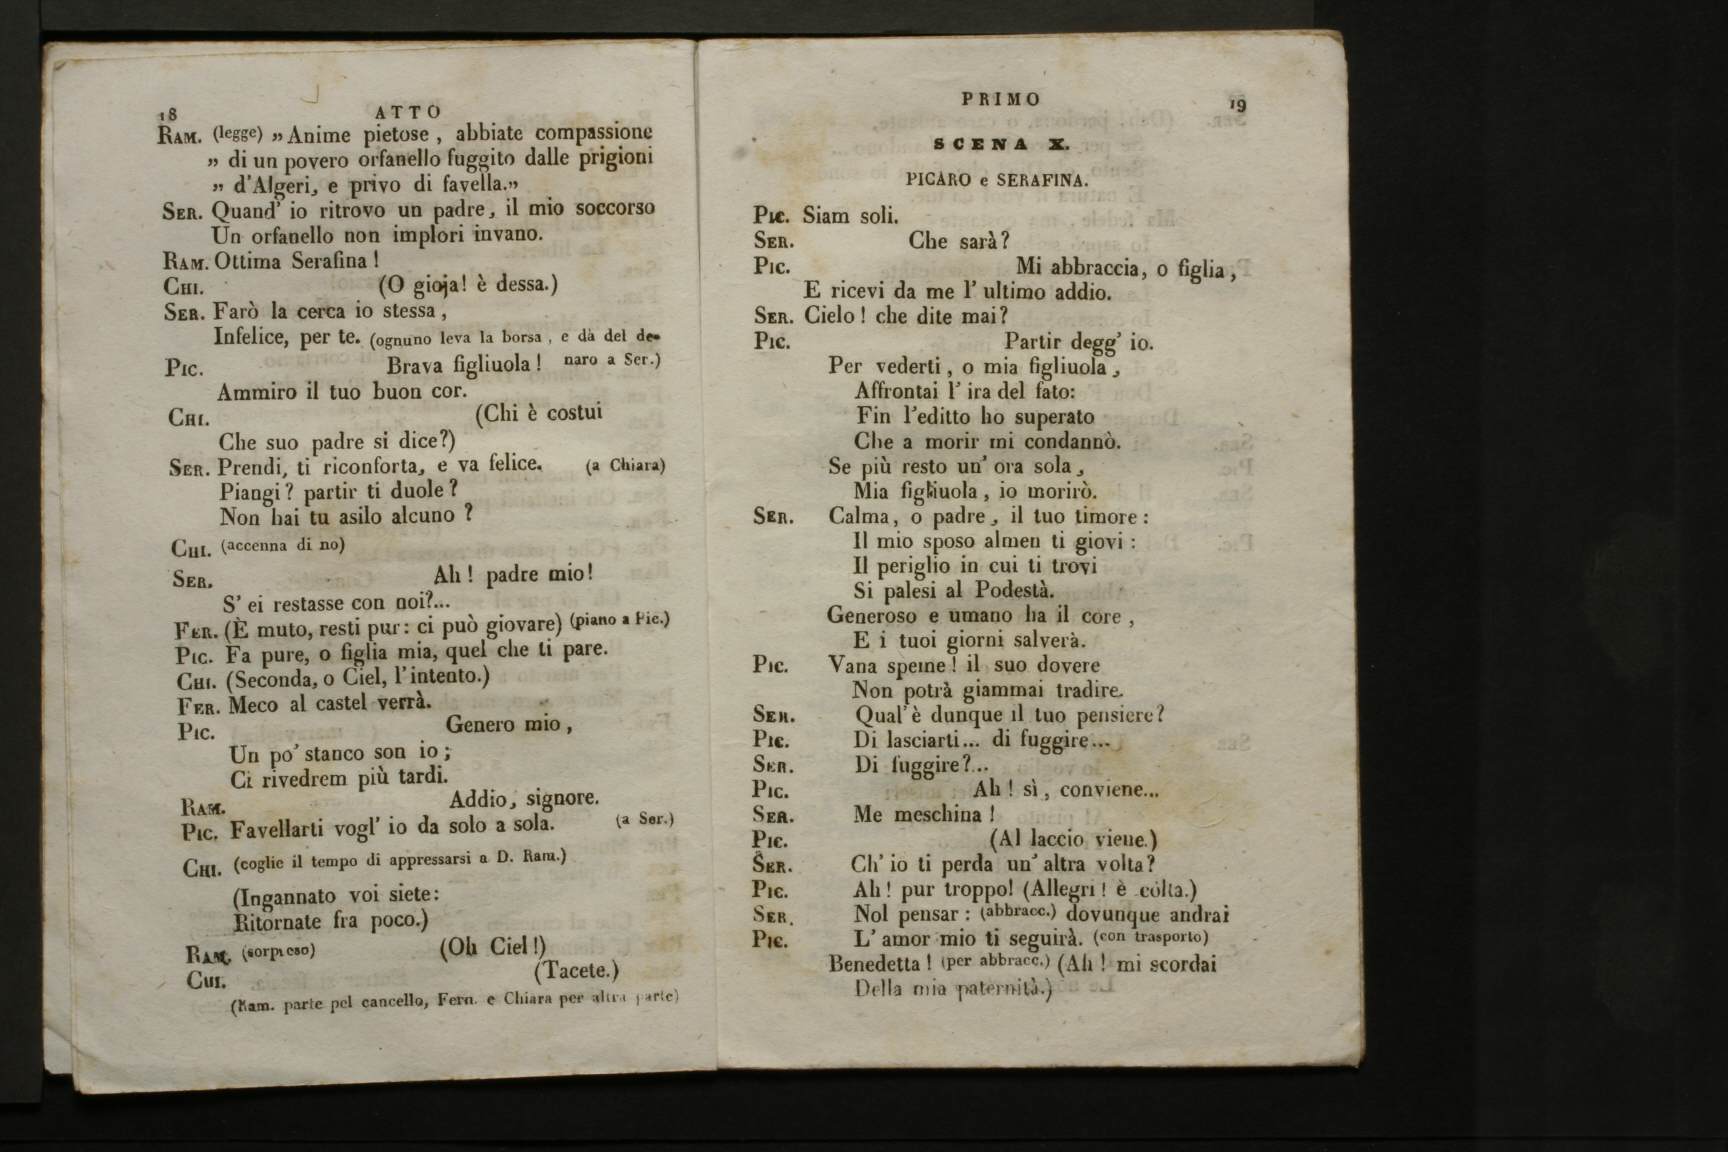 18 ATTO
RAM. (legge) „ Anime pietose , abbiate compassione
„ di un povero orfanello fuggito dalle prigioni
„ d'Algeri, e privo di favella.„
SER. Quand' io ritrovo un padre, il mio soccorso
Un orfanello non implori invano.
RAM. Ottima Serafina !
CHI. (O gioja! è dessa.)
SER. Farò la cerca io stessa ,
Infelice, per te. (ognuno leva la borsa , e dà del de-
PIC. Brava figliuola ! naro a Ser.)
Ammiro il tuo buon cor.
CHI. (Chi è costui
Che suo padre si dice?)
SER. Prendi, ti riconforta, e va felice. (a Chiara)
Piangi ? partir ti duole ?
Non hai tu asilo alcuno ?
CHI. (accenna di no)
SER. Ah ! padre mio!
S' ei restasse con noi?...
FER. (È muto, resti pur: ci può giovare) (piano a Pic.)
PIC. Fa pure, o figlia mia, quel che ti pare.
CHI. (Seconda, o Ciel, l'intento.)
FER. Meco al castel verrà.
PIC. Genero mio ,
Un po' stanco son io ;
Ci rivedrem più tardi.
RAM. Addio, signore.
PIC. Favellarti vogl' io da solo a sola. (a Ser.)
CHI. (coglie il tempo di appressarsi a D. Ram.)
(Ingannato voi siete:
Ritornate fra poco.)
RAM. (sorpreso) (Oh Ciel !)
CHI. (Tacete.)
(Ram. parte pel cancello, Fern. e Chiara per altra parte)
PRIMO 19
SCENA X.
PICARO e SERAFINA.
PIC. Siam soli.
SER. Che sarà?
PIC. Mi abbraccia, o figlia ,
E ricevi da me l' ultimo addio.
SER. Cielo ! che dite mai?
PIC. Partir degg' io.
Per vederti , o mia figliuola ,
Affrontai l' ira del fato:
Fin l'editto ho superato
Che a morir mi condannò.
Se più resto un' ora sola ,
Mia figliuola , io morirò.
SER. Calma, o padre, il tuo timore :
Il mio sposo almen ti giovi :
Il periglio in cui ti trovi
Si palesi al Podestà.
Generoso e umano ha il core ,
E i tuoi giorni salverà.
PIC. Vana speme ! il suo dovere
Non potrà giammai tradire.
SER. Qual'è dunque il tuo pensiere?
PIC. Di lasciarti... di fuggire...
SER. Di fuggire?...
PIC. Ah ! sì , conviene...
SER. Me meschina !
PIC. (Al laccio viene.)
SER. Ch' io ti perda un' altra volta?
PIC. Ah ! pur troppo! (Allegri ! è colta.)
SER. Nol pensar : (abbracc.) dovunque andrai
PIC. L' amor mio ti seguirà. (con trasporto)
Benedetta ! (per abbracc.) (Ah ! mi scordai
Della mia paternità.)